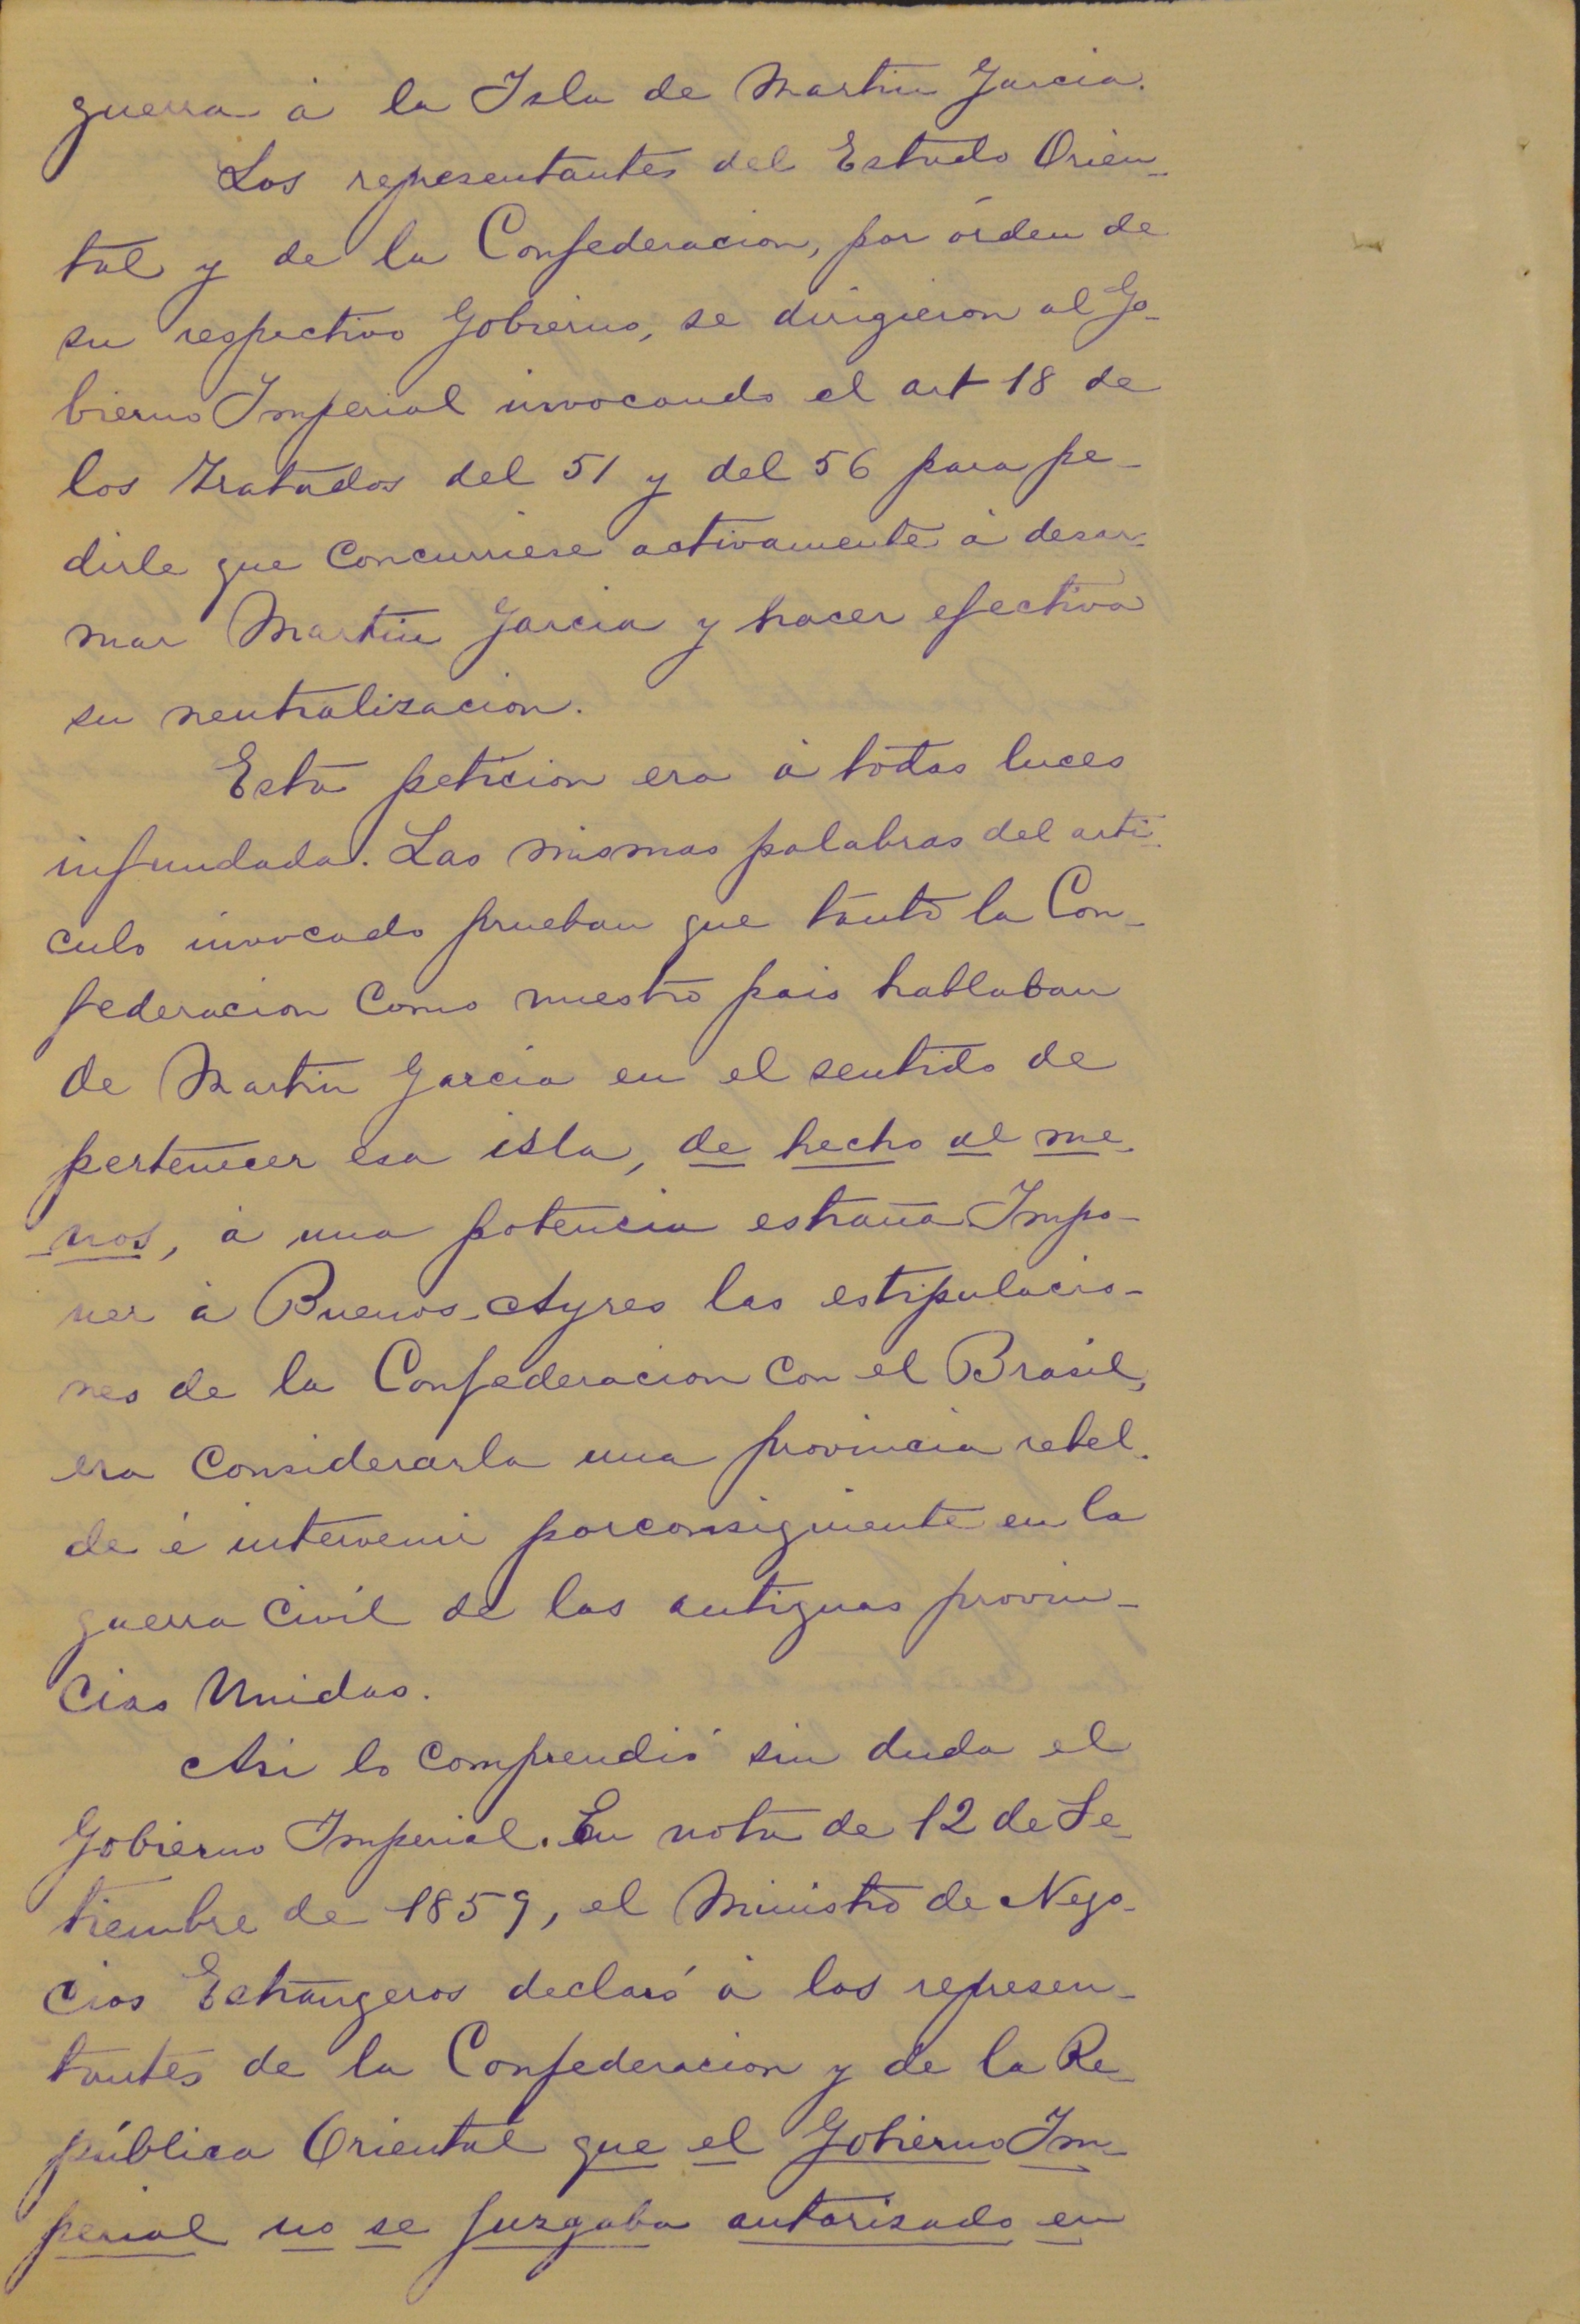 guerra á la Isla de Martin Garcia.
Los representantes del Estado Orien-
tal y de la Confederacion, por órden de
su respectivo Gobierno, se dirigieron al Go-
bierno Imperial invocando el art 18 de
los Tratados del 51 y del 56 para pe-
dirle que concurriese activamente á desar-
mar Martin Garcia y hacer efectiva
su neutralizacion.
Esta peticion era á todas luces
infundada. Las mismas palabras del arti-
culo invocado prueban que tanto la Con-
federacion como nuestro pais hablaban
de Martin Garcia en el sentido de
pertenecer esa isla, de hecho al me-
nos, á una potencia estraña Impo-
ner á Buenos-Ayres las estipulacio-
nes de la Confederacion con el Brasil,
era considerarla una provincia rebel-
de é intervenir porconsiguiente en la
guerra civil de las antiguas provin-
cias Unidas.
Asi lo comprendió sin duda el
Gobierno Imperial. En nota de 12 de Se-
tiembre de 1859, el Ministro de Nego-
cios Estrangeros declaró á los represen-
tantes de la Confederacion y de la Re-
pública Oriental que el Gobierno Im-
perial no se juzgaba autorizado en